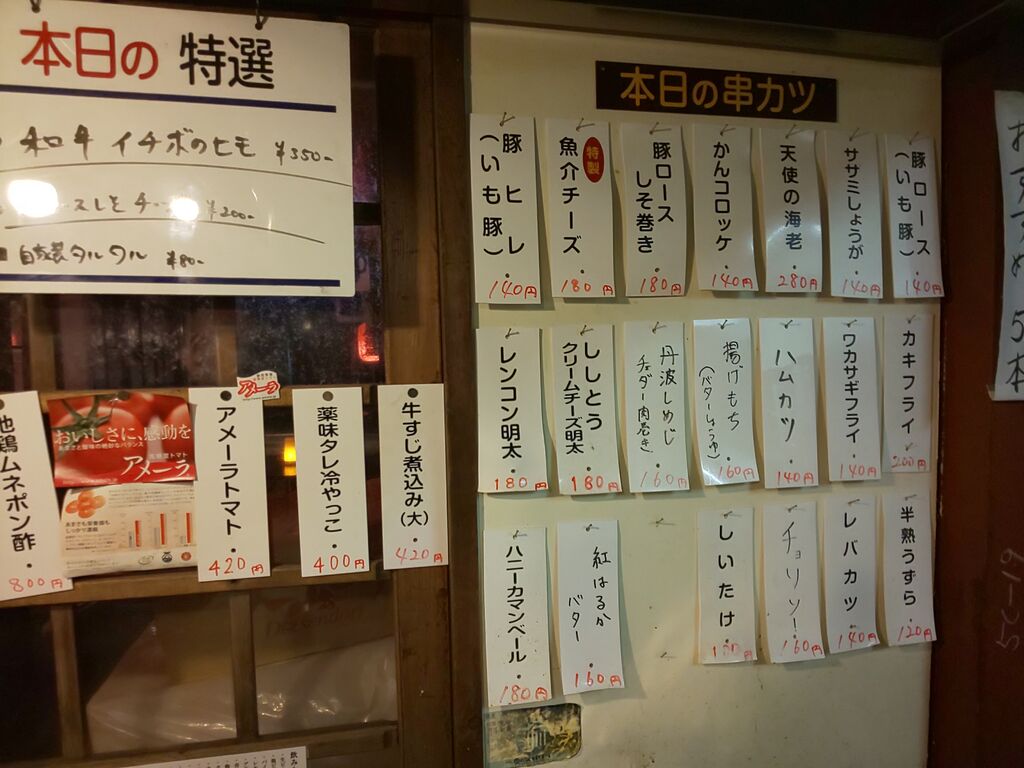 本日の 特選
和牛 イチボのヒモ ¥350-
¥200-
自家製タルタル ¥80-
地鶏ムネポン酢・800円
おいしさに、感動を
アメーラ
アメーラ
アメーラトマト・420円
薬味タレ冷やっこ・400円
牛すじ煮込み(大)・420円
本日の串カツ
豚ロース(いも豚)・140円
ササミしょうが・140円
天使の海老・280円
かんコロッケ・140円
豚ロースしそ巻き・180円
特製 魚介チーズ・180円
豚ヒレ(いも豚)・140円
カキフライ・200円
ワカサギフライ・140円
ハムカツ・140円
揚げもち(バターしょうゆ)・160円
丹波しめじチェダー肉巻き・160円
ししとうクリームチーズ明太・180円
レンコン明太・180円
半熟うずら・120円
レバカツ・140円
チョリソー・160円
しいたけ・
紅はるかバター・160円
ハニーカマンベール・180円
おすすめ5本